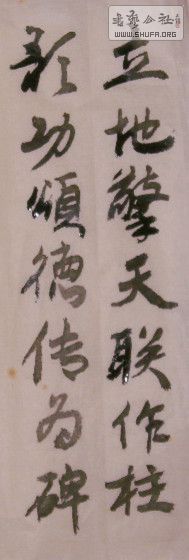 書藝公社
WWW.SHUFA.ORG
立地擎天联作柱
歌功頌德传为碑